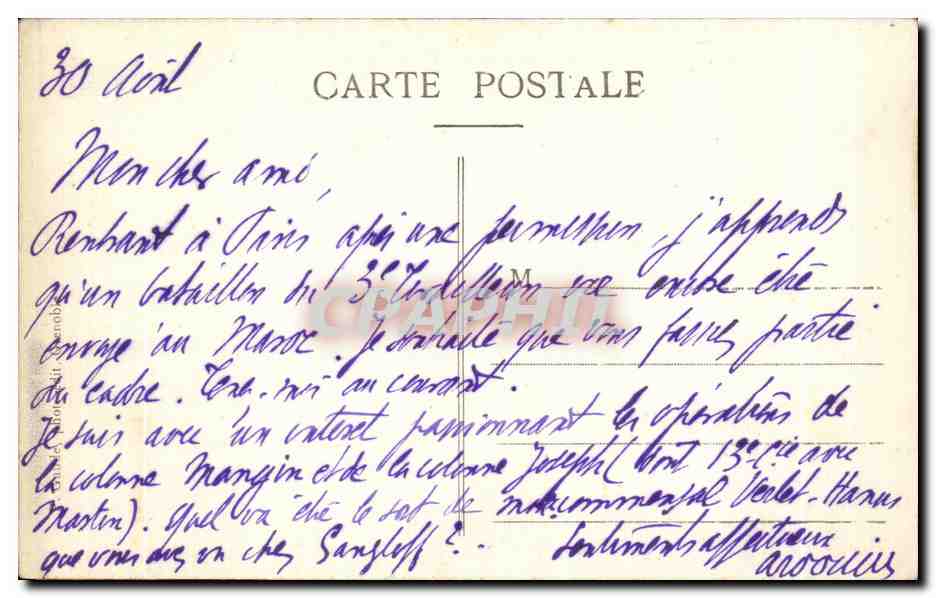 30 Avril
CARTE POSTALE
Mon cher ami,
Rentrant à Paris après une permission, j'apprends
qu'un bataillon du 3e Tirailleurs va encore être
envoyé au Maroc. Je souhaite que vous fassiez partie
du cadre. Tenez-moi au courant.
Je suis avec un intéret passionnant les opérations de
la colonne Mangin et de la colonne Joseph (dont 13e Cie avec
Martin). Quel va être le sort de mon commensal Verlet-Hanus
que vous avez vu chez Gangloff?
Sentiments affectueux
M
CPAPHIL